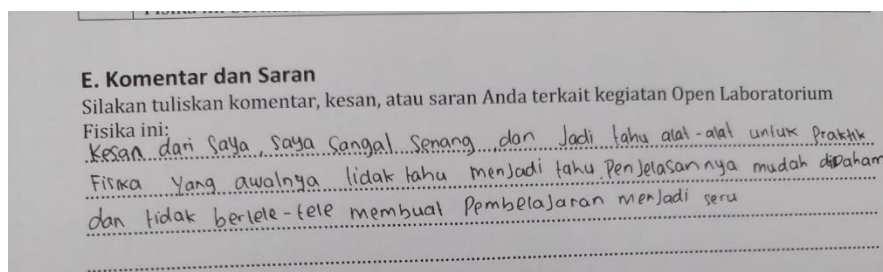 E. Komentar dan Saran
Silakan tuliskan komentar, kesan, atau saran Anda terkait kegiatan Open Laboratorium
Fisika ini:
Kesan dari saya, saya sangat senang dan Jadi tahu alat-alat untuk Praktik
Fisika yang awalnya tidak tahu menjadi tahu Penjelasannya mudah dipaham
dan tidak bertele-tele membuat Pembelajaran menjadi seru